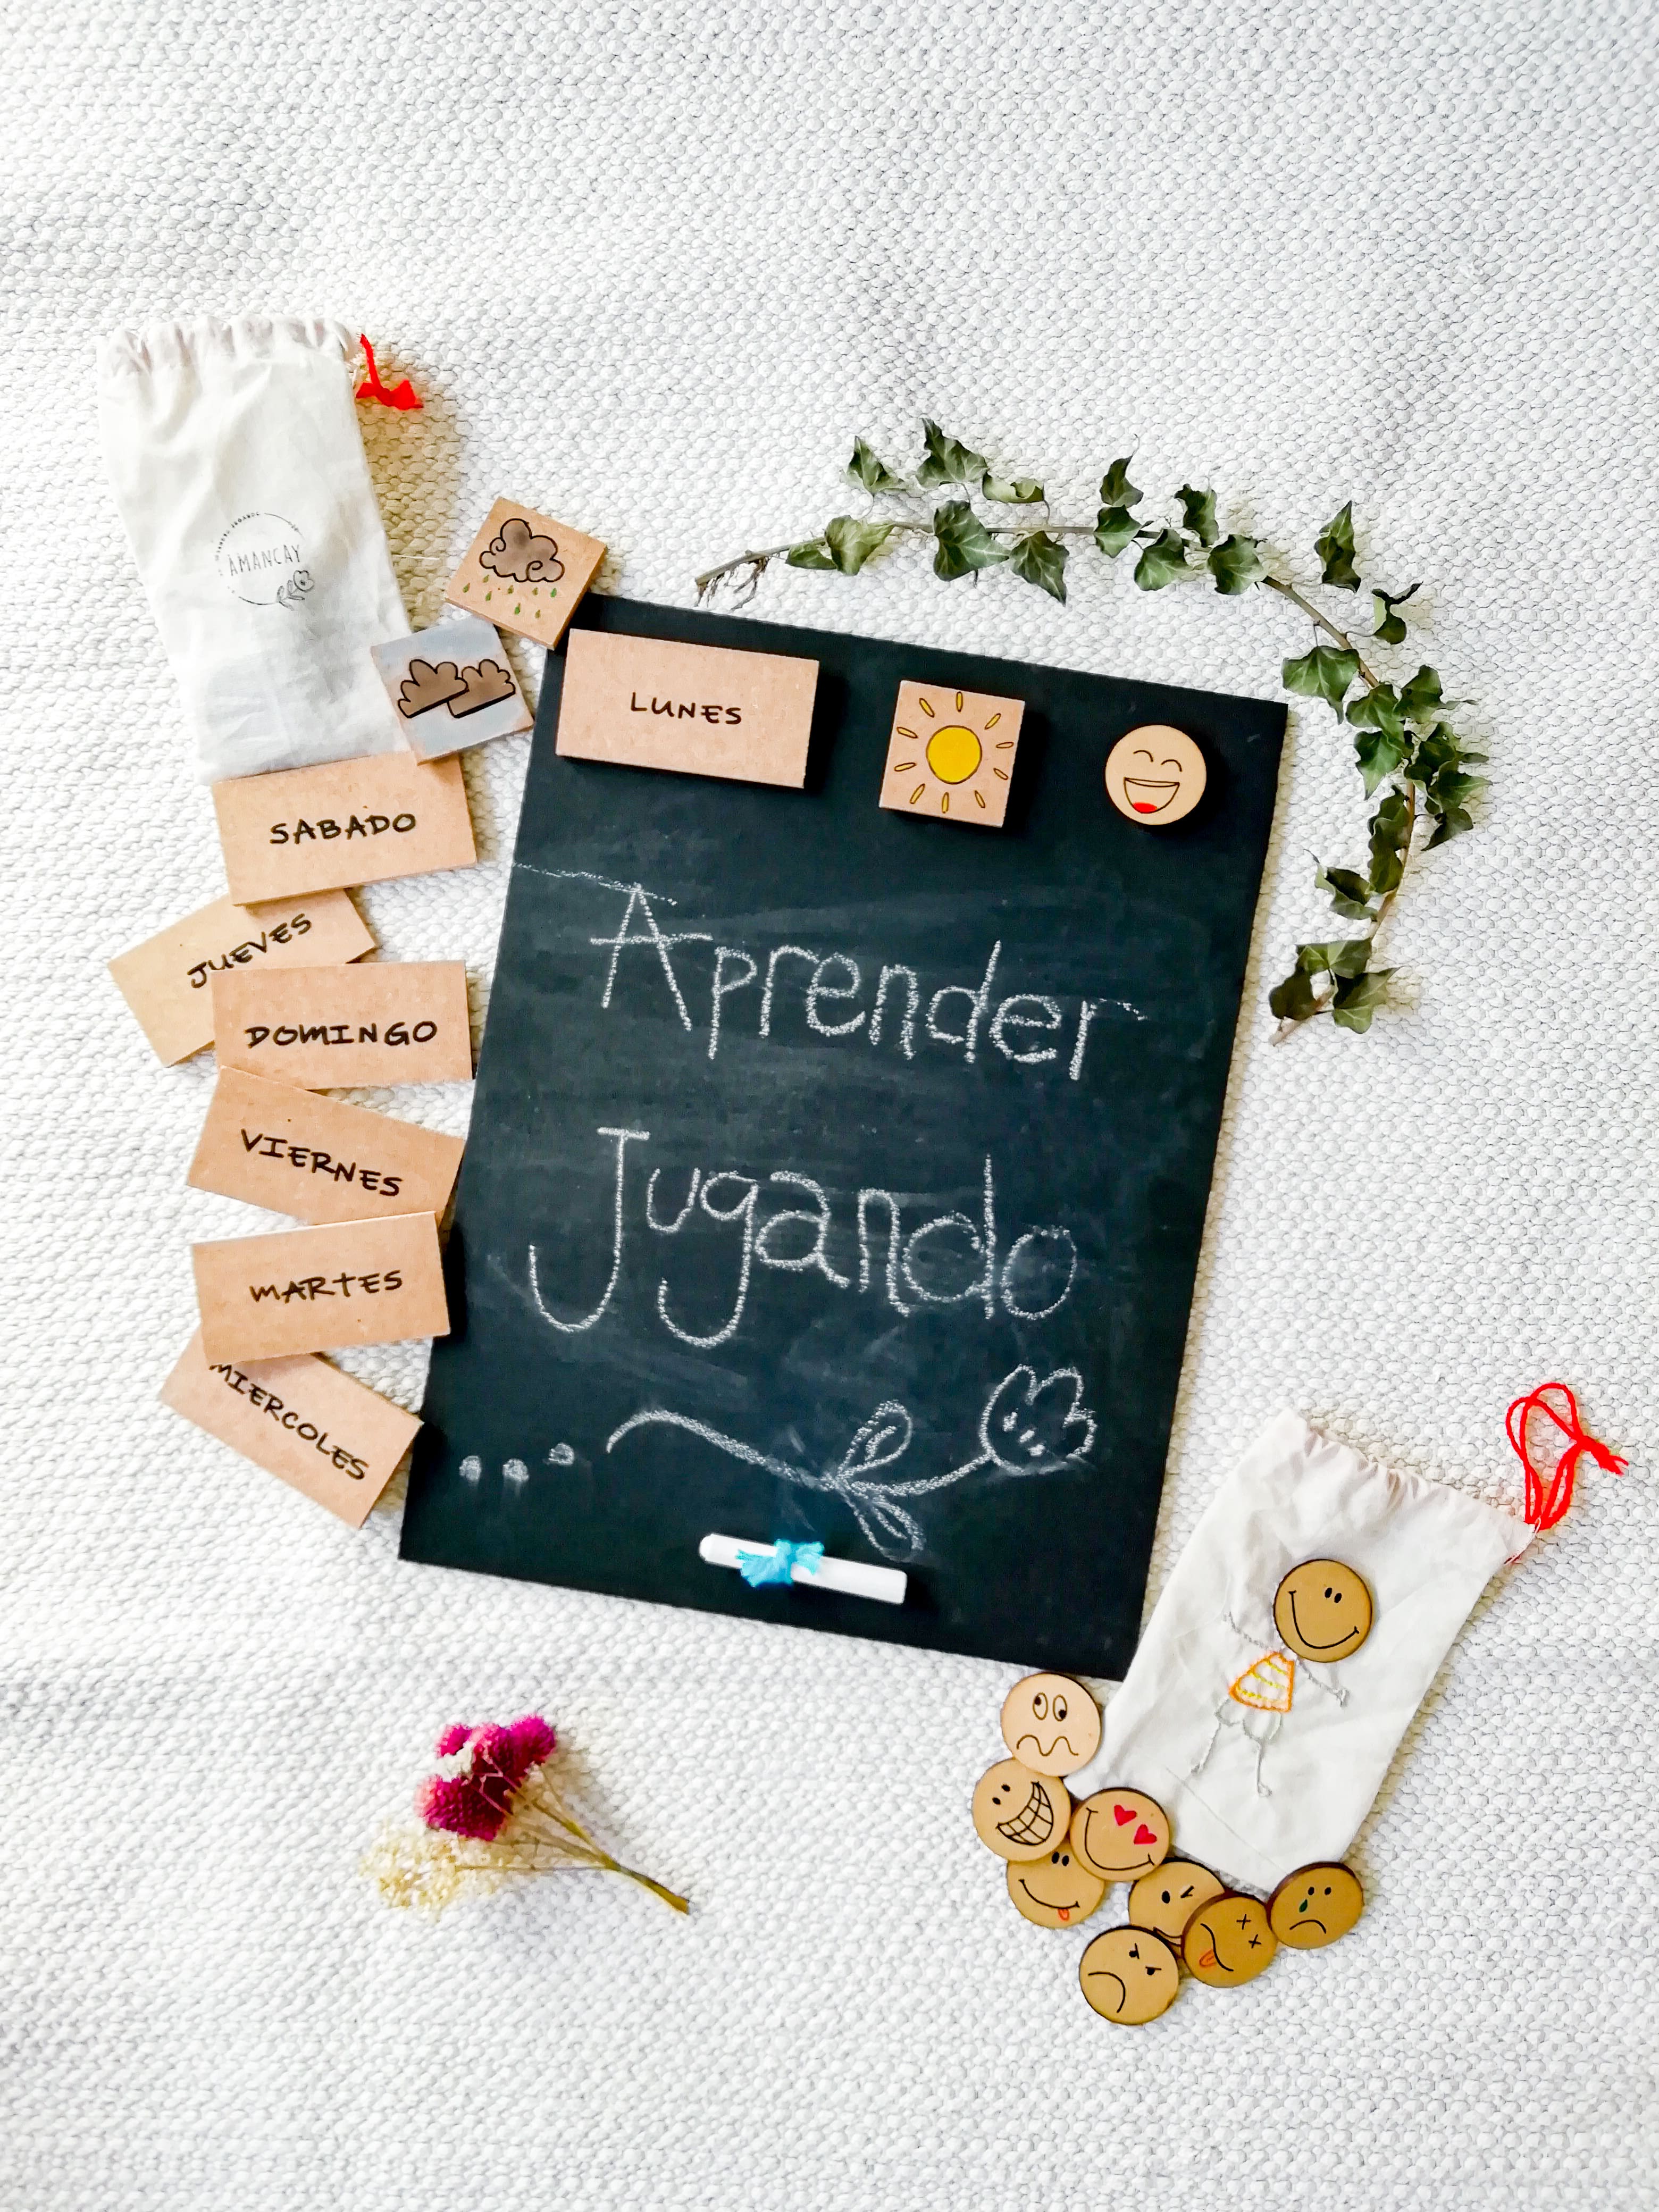 AMANCAY
LUNES
SABADO
JUEVES
DOMINGO
VIERNES
MARTES
MIERCOLES
Aprender
Jugando